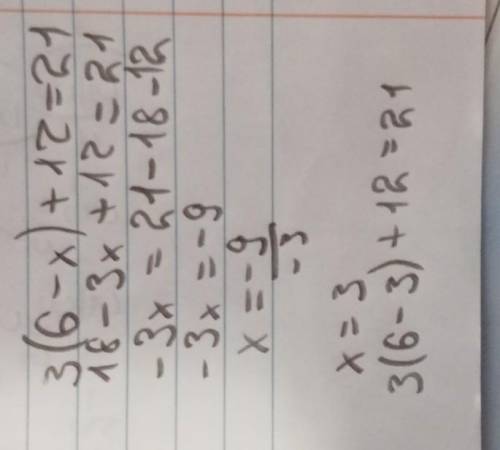 3(6-x)+12=21
18-3x+12=21
-3x=21-18-12
-3x=-9
x=-9/-3
x=3
3(6-3)+12=21